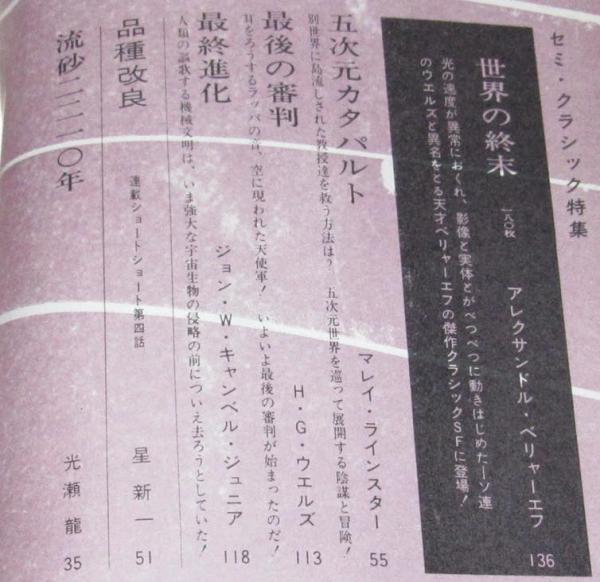 セミ・クラシック特集
世界の終末 一八〇枚 アレクサンドル・ベリャーエフ 136
光の速度が異常におくれ、影像と実体とがべつべつに動きはじめた――ソ連
のウエルズと異名をとる天才ベリャーエフの傑作クラシックSFに登場!
五次元カタパルト マレイ・ラインスター 55
別世界に島流しされた教授達を救う方法は? 五次元世界を巡って展開する陰謀と冒険!
最後の審判 H・G・ウエルズ 113
耳をろうするラッパの音、空に現われた天使軍! いよいよ最後の審判が始まったのだ!
最終進化 ジョン・W・キャンベル・ジュニア 118
人類の謳歌する機械文明は、いま強大な宇宙生物の侵略の前についえ去ろうとしていた!
品種改良 連載ショートショート第四話 星新一 51
流砂二二一〇年 光瀬龍 35